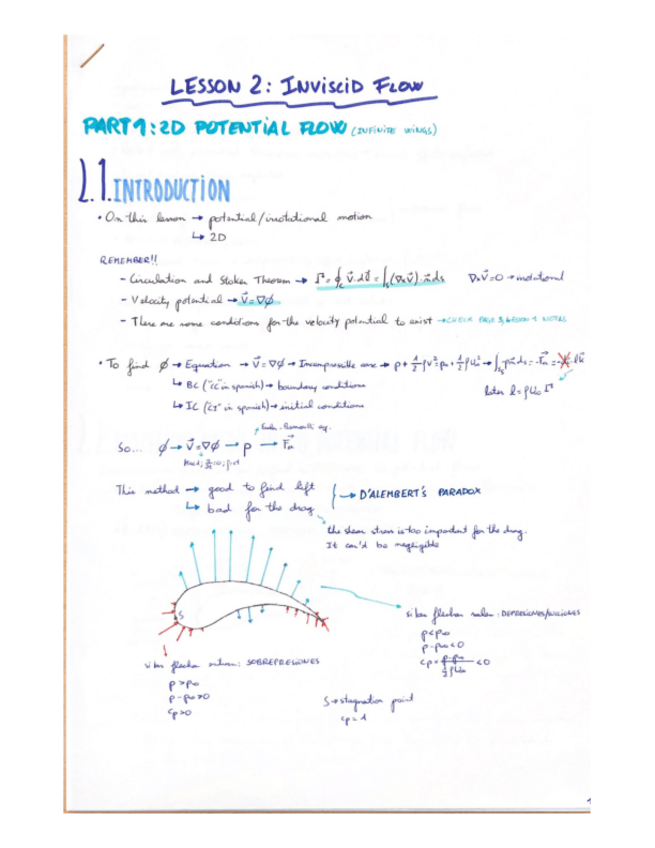 LESSON 2: INVISCID FLOW
PART 1: 2D POTENTIAL FLOW (INFINITE WINGS)
2.1. INTRODUCTION
• On this lesson → potential/irrotational motion
↳ 2D
REMEMBER!!
- Circulation and Stokes Theorem → Γ = ∮c V⃗·dl⃗ = ∫s (∇×V⃗)·n⃗ ds ∇×V⃗=0 → irrotational
- Velocity potential → V⃗ = ∇φ
- There are some conditions for the velocity potential to exist → CHECK PAGE 3, LESSON 1 NOTES
• To find φ → Equation → V⃗=∇φ → Incompressible case → p + ½ρV² = p∞ + ½ρU∞² →
↳ BC ("CC" in spanish) → boundary conditions
later l = ρU∞Γ
↳ IC ("CI" in spanish) → initial conditions
Euler-Bernoulli eq.
So... φ → V⃗=∇φ → p → F⃗a
This method → good to find lift
↳ bad for the drag
→ D'ALEMBERT'S PARADOX
the shear stress is too important for the drag.
It can'd be negligible
S
si las flechas salen: DEPRESIONES/SUCCIONES
p<p∞
p-p∞<0
cp = p-p∞ / ½ρU∞² <0
si las flechas entran: SOBREPRESIONES
p>p∞
p-p∞>0
cp>0
S → stagnation point
cp = 1
1